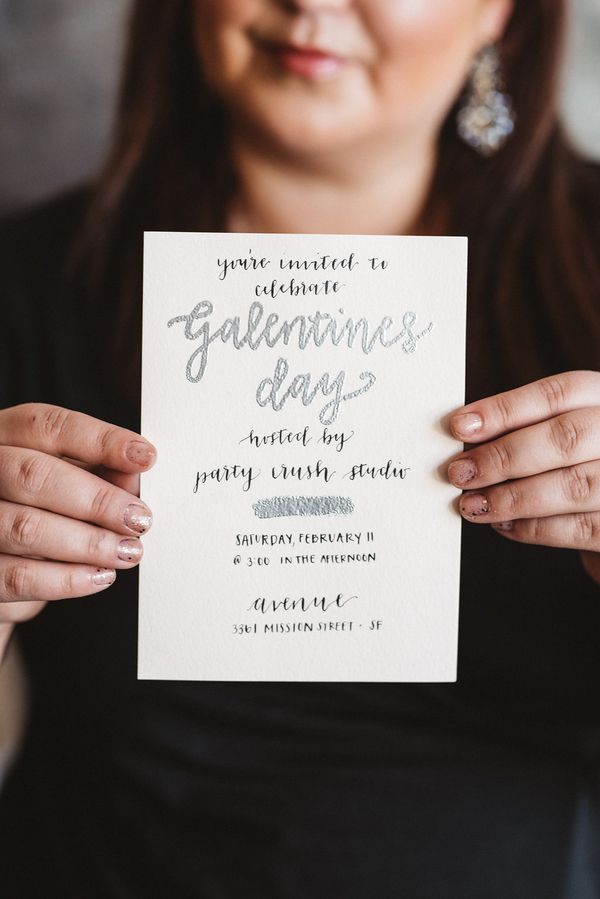 you're invited to
celebrate
Galentines
day
hosted by
party crush studio
SATURDAY, FEBRUARY 11
@ 3:00 IN THE AFTERNOON
avenue
3361 MISSION STREET · SF